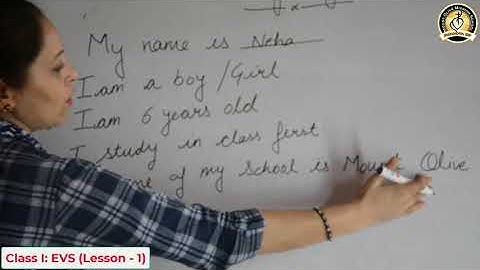 My name is Neha
I am a boy/Girl
I am 6 years old
I study in class first
of my school is Mount Olive
Class I: EVS (Lesson - 1)